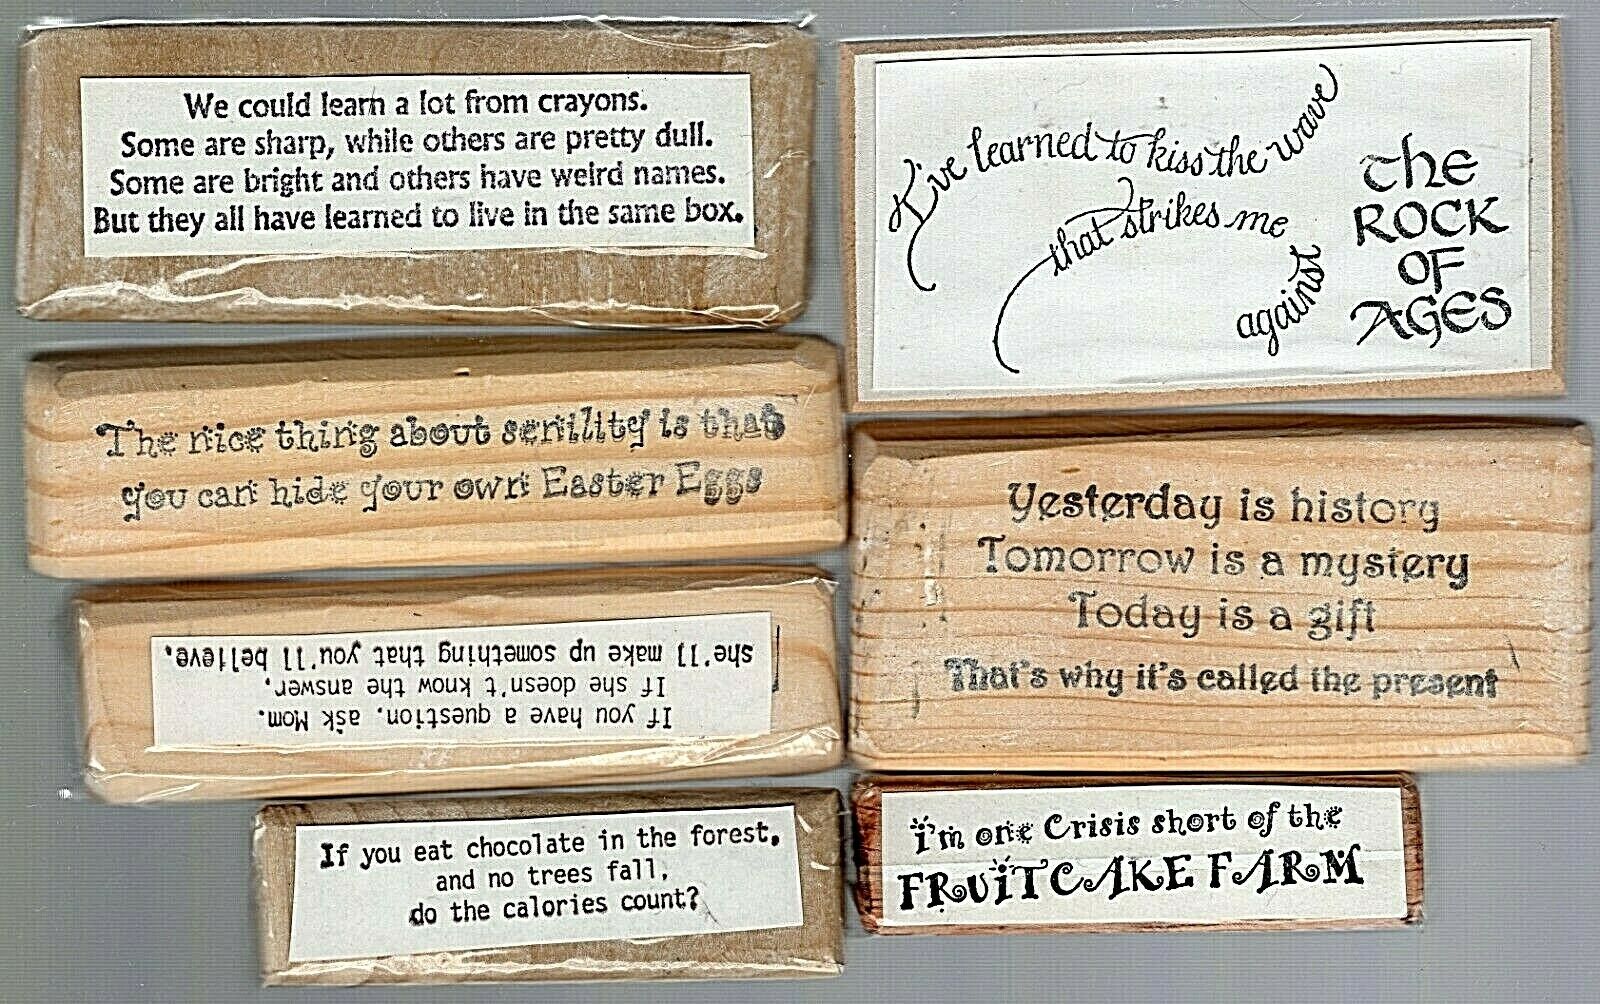 We could learn a lot from crayons.
Some are sharp, while others are pretty dull.
Some are bright and others have weird names.
But they all have learned to live in the same box.
I've learned to kiss the wave
that strikes me
against
The
ROCK
OF
AGES
The nice thing about senility is that
you can hide your own Easter Eggs
Yesterday is history
Tomorrow is a mystery
Today is a gift
That's why it's called the present
If you have a question, ask Mom.
If she doesn't know the answer,
she'll make up something that you'll believe.
If you eat chocolate in the forest,
and no trees fall,
do the calories count?
I'm one Crisis short of the
FRUITCAKE FARM